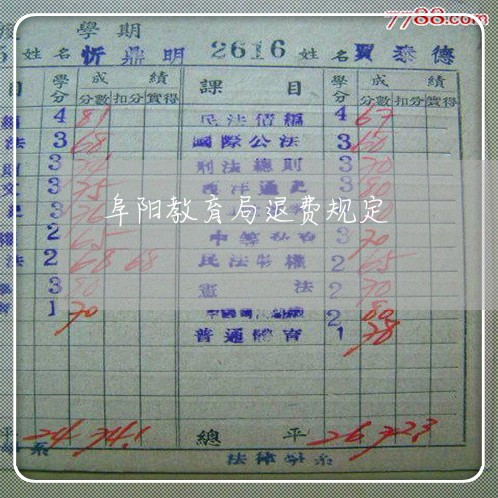 7788.com
學期
姓名 忻鼎明 2616 姓名 賈泰德
目 學分 成績 課目 學分 成績
分數 扣分 實得 分數 扣分 實得
4 81 民法債編 4 67
法 3 68 國際公法 3 60
3 刑法總則 3 70
3 75 西洋通史 3 80
阜阳教育局退费规定
2 65 3 70
法 2 68 68 民法物權 2 65
3 80 憲法 2 70
1 70 2 80
普通體育 1 78
平 24 74.1 總平 26 72.3
系 法律學系